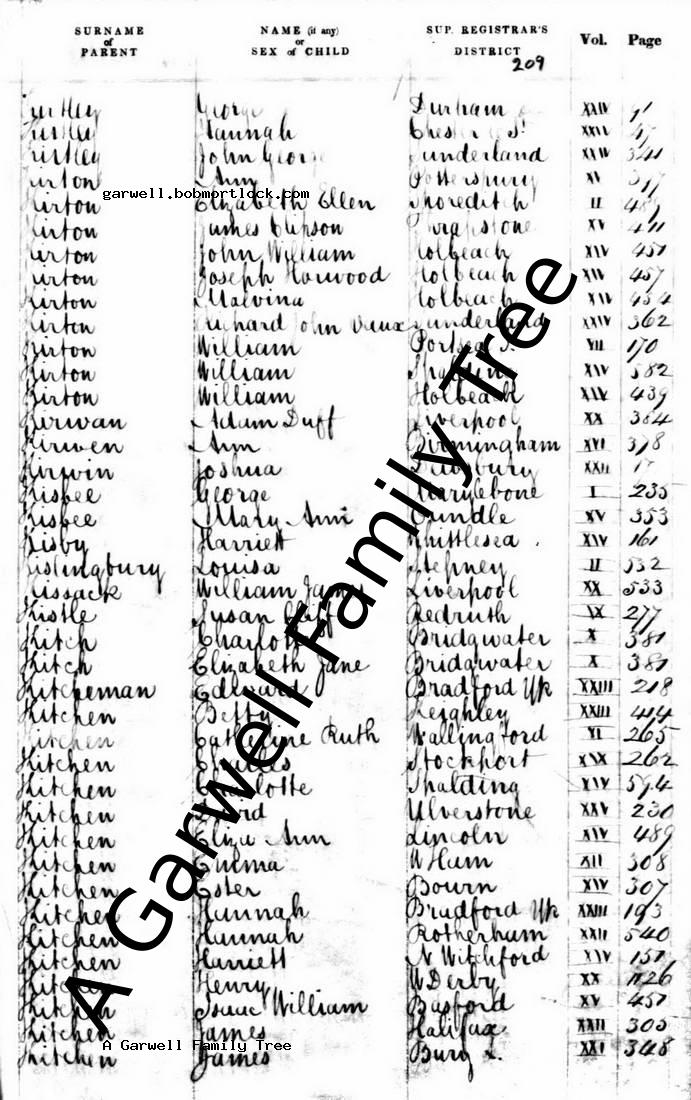 SURNAME of PARENT NAME (if any) or SEX of CHILD SUP. REGISTRAR'S DISTRICT Vol. Page
209
George Durham XXIV 91
Hannah Chester le St XXIV 47
John George Sunderland XXIV 341
Kirton Ann Potterspury XV 317
garwell.bobmortlock.com
Kirton Elizabeth Ellen Shoreditch II 489
Kirton James Clipson Thrapstone XV 411
Kirton John William Holbeach XIV 451
Kirton Joseph Horwood Holbeach XIV 457
Kirton Malvina Holbeach XIV 454
Kirton Richard John Vaux Sunderland XXIV 362
Kirton William Portsea I. VII 170
Kirton William Spalding XIV 582
Kirton William Holbeach XIV 439
Kirwan Adam Duff Liverpool XX 384
Kirwen Ann Birmingham XVI 378
Kirwin Joshua Dewsbury XXII
Kisbee George Marylebone I 235
Kisbee Mary Ann Oundle XV 353
Kisby Harriett Whittlesea XIV 161
Kislingbury Louisa Stepney II 532
Kissack William James Liverpool XX 533
Kistle Susan Redruth IX 277
Kitch Charlotte Bridgwater X 381
Kitch Elizabeth Jane Bridgwater X 381
Kitcheman Edward Bradford Yk XXIII 218
Kitchen Betty Keighley XXIII 414
Kitchen Catherine Ruth Wallingford VI 265
Kitchen Charles Stockport XIX 262
Kitchen Charlotte Spalding XIV 594
Kitchen Ulverstone XXV 230
Kitchen Eliza Ann Lincoln XIV 489
Kitchen Emma W Ham XII 308
Kitchen Ester Bourn XIV 307
Kitchen Hannah Bradford Yk XXIII 193
Kitchen Hannah Rotherham XXII 540
Kitchen Harriett N Witchford XIV 151
Kitchen Henry W Derby XX 1126
Kitchen Isaac William Basford XV 451
Kitchen James Halifax XXII 305
A Garwell Family Tree
Kitchen James Bury L. XXI 348
A Garwell Family Tree